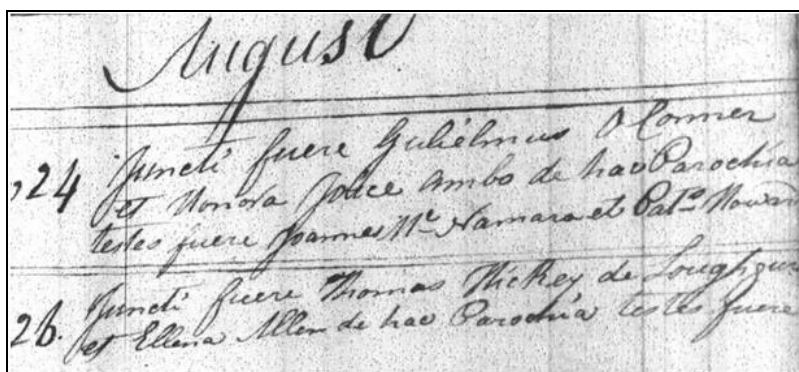 August
24 Juncti fuere Guliélmus O Conner
et Honora Joice ambo de hac Parochia
testes fuere Joannes Mc Namara et Pato Howard
26. Juncti fuere Thomas Hickey de
et Ellena Allen de hac Parochia testes fuere